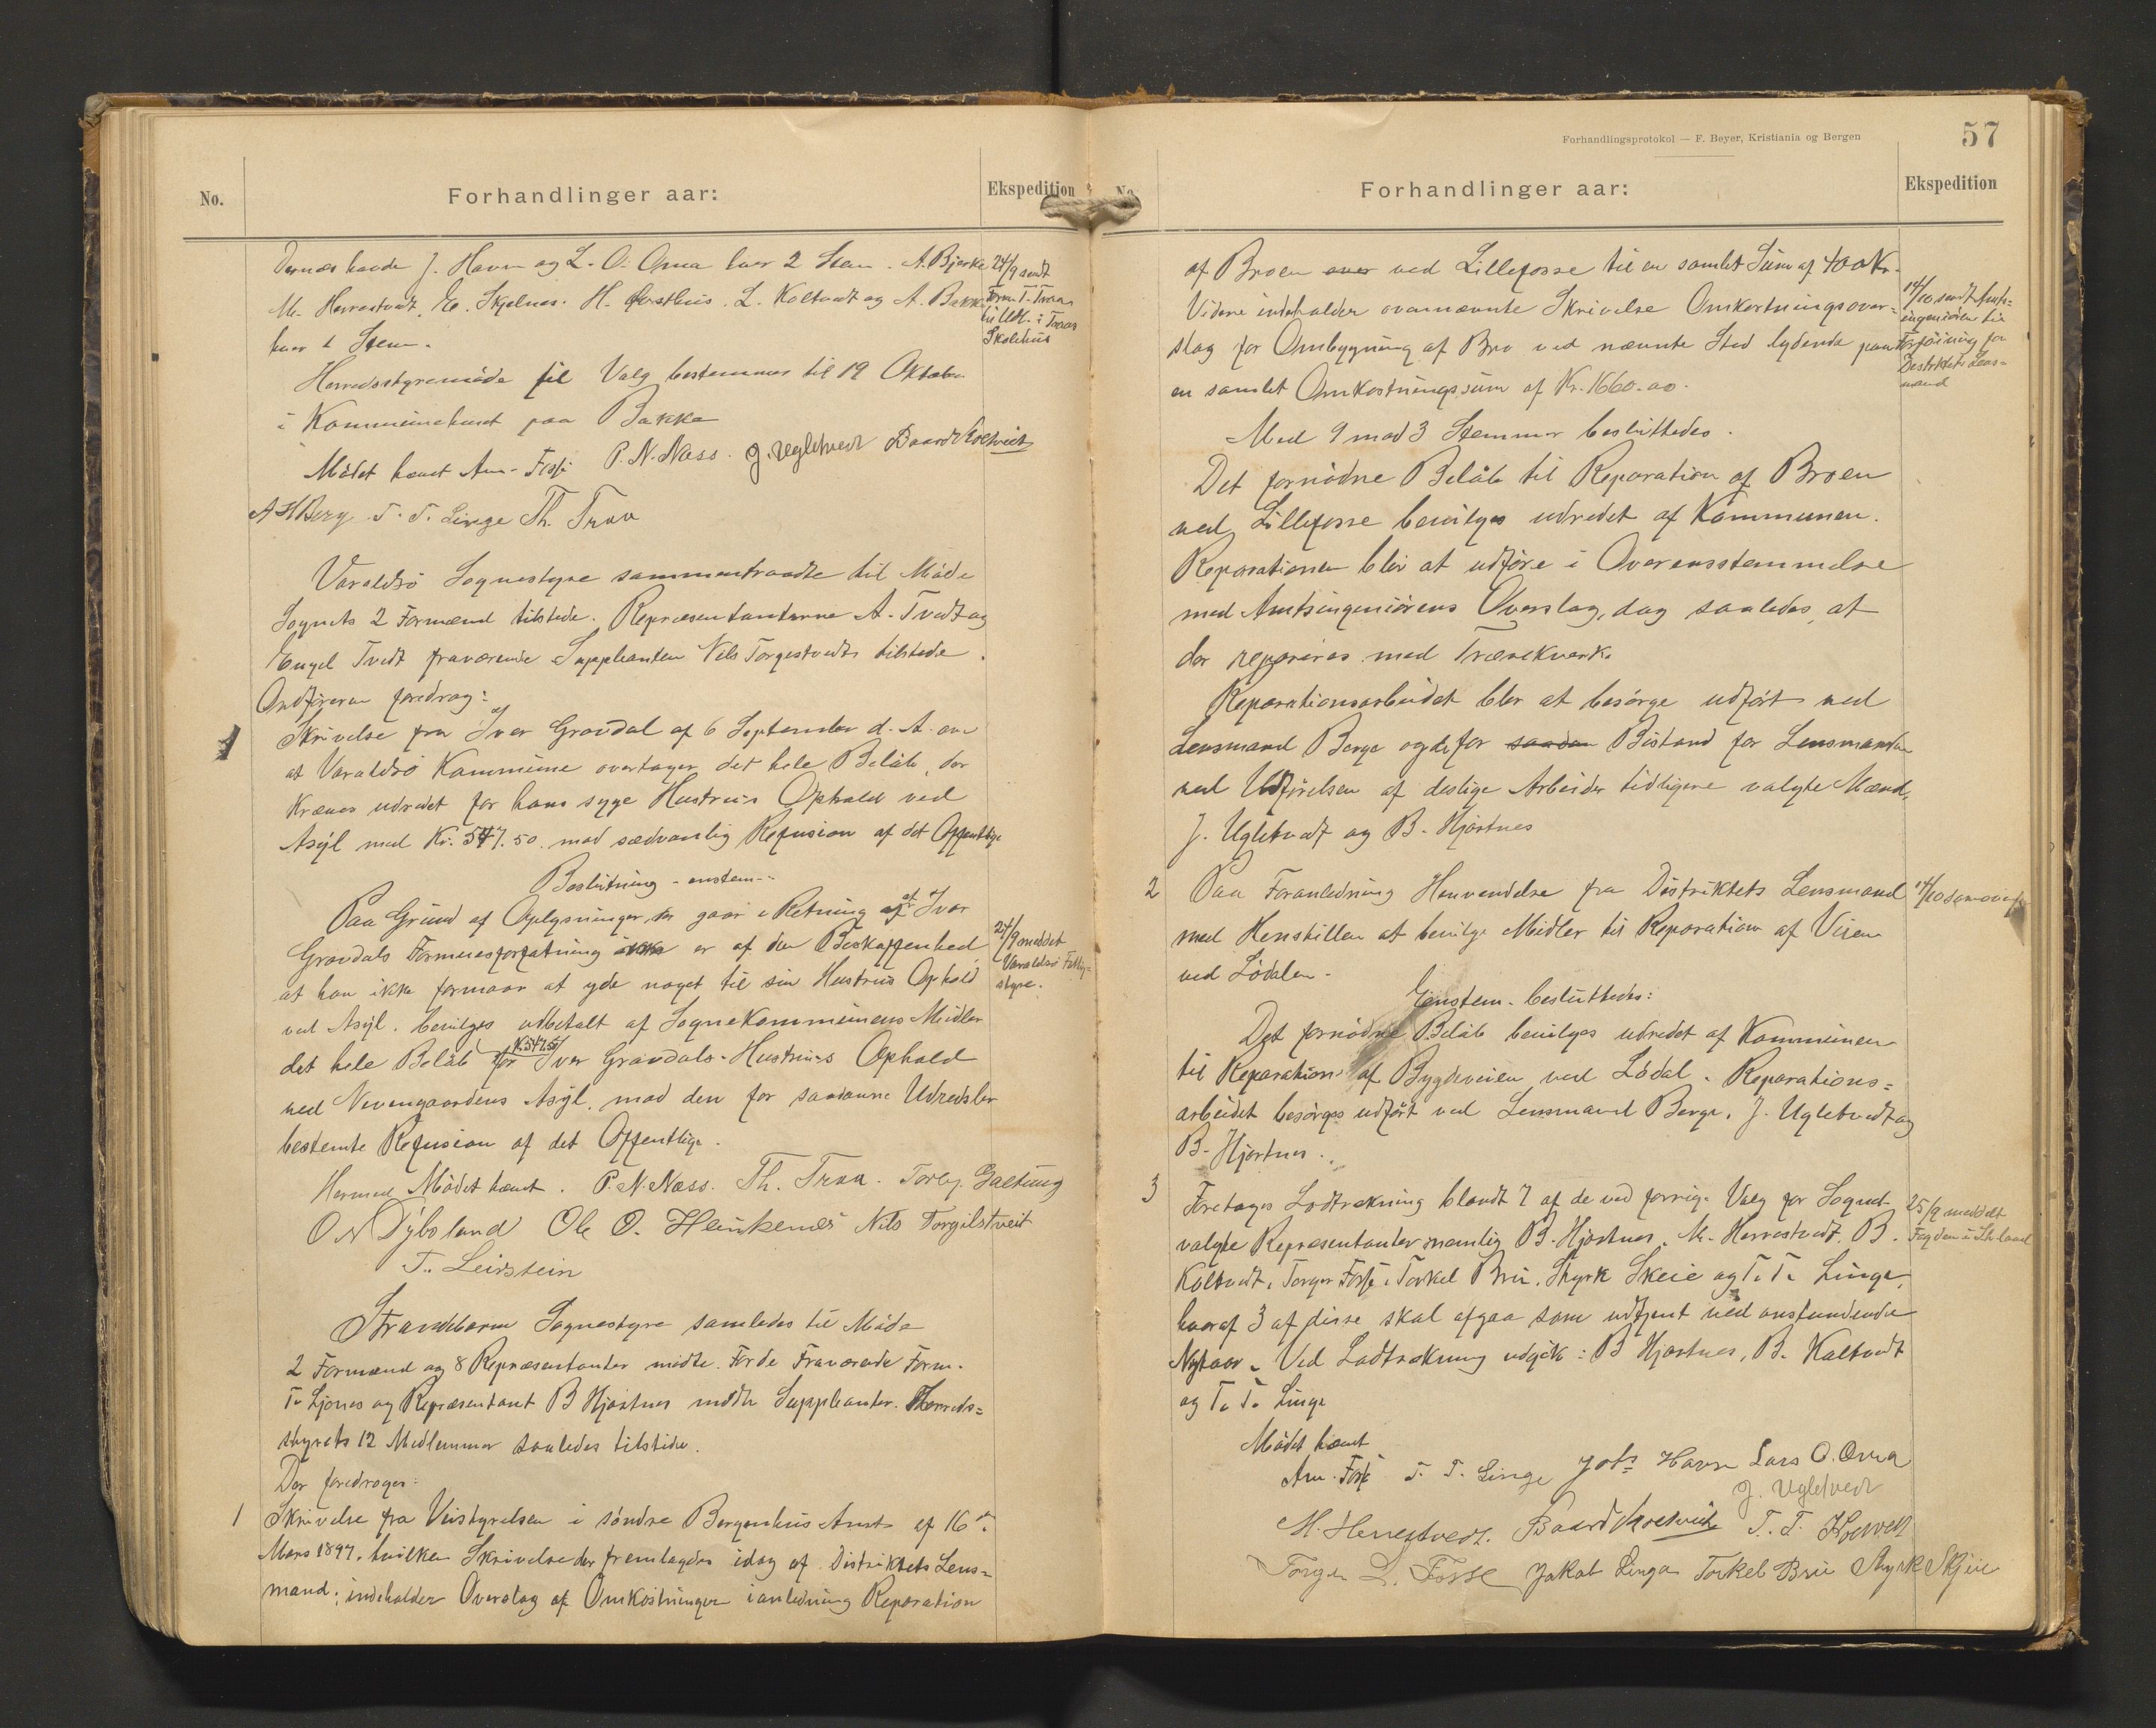 No.
Forhandlinger aar:
Ekspedition
Dernæs havde J. Havn og L. O. Oma hver 2 Stem. A. Bjerke
M. Herrestvedt, E. Skjelnes. H. L. Koltvedt og A. Bakke
hver 1 Stem.
24/9 sendt
Form. T. Traa
i Traaes
Skolehus
Herredsstyremöde til Valg bestemmes til 19 Oktober
i Kommunehuset paa Bakke
Mödet hævet Am. Fosse P. N. Næss. J. Ugletvedt Baard Koltveit
A H Berg T. T. Linge Th. Traa
Varaldsö Sognestyre sammentraadte til Möde
Sognets 2 Formænd tilstede. Repræsentanterne A. Tvedt og
Engel Tvedt fraværende Suppleanten Nils Torgestvedt tilstede.
Ordföreren foredrog:
1
Skrivelse fra Iver Gravdal af 6 September d. A. om
at Varaldsö Kommune overtager det hele Belöb, der
kræves udredet for hans syge Hustrus Ophold ved
Asyl med Kr. 547.50 mod sædvanlig Refusion af det Offentlige
Beslutning - enstem..
Paa Grund af Oplysninger, der gaar i Retning af at Iver
Gravdals Formuesforfatning ikke er af den Beskaffenhed
at han ikke formaar at yde noget til sin Hustrus Ophold
ved Asyl, bevilges udbetalt af Sognekommunens Midler
det hele Belöb Kr 547.50 for Iver Gravdals Hustrues Ophold
ved Nevengaardens Asyl, mod den for saadanne Udredsler
bestemte Refusion af det Offentlige.
24/9 meddelt
Varaldsö Fattig=
styre.
Hermed Mödet hævet. P. N. Næss. Th. Traa. Torbj. Galtung
O N Dybsland Ole O. Heinkenes Nils Torgilstveit
T. Leirstein
Strandebarm Sognestyre samledes til Möde
2 Formænd og 8 Repræsentanter mödte. For de Fraværende Form.
T. Ljones og Repræsentant B Hjartnes mödte Suppleanter. Herreds=
styrets 12 Medlemmer saaledes tilstede.
Der foredroges:
1
Skrivelse fra Veistyrelsen i söndre Bergenhus Amt af 16de
Mars 1897, hvilken Skrivelse der fremlagdes idag af Distriktets Lens=
mand; indeholder Overslag af Omkostninger i anledning Reparation
Forhandlingsprotokol — F. Beyer, Kristiania og Bergen
57
No.
Forhandlinger aar:
Ekspedition
af Broen over ved Lillefosse til en samlet Sum af 400 Kr.
Videre indeholder ovennævnte Skrivelse Omkostningsover=
slag for Ombygning af Bro ved nævnte Sted lydende paa
en samlet Omkostningssum af Kr. 1660.00.
14/10 sendt Amts=
ingeniören til
Föining for
Distriktets Lens=
mand
Med 9 mod 3 Stemmer besluttedes.
Det fornödne Belöb til Reparation af Broen
ved Lillefosse bevilges udredet af Kommunen.
Reparationen blir at udföre i Overensstemmelse
med Amtsingeniörens Overslag, dog saaledes, at
der repareres med Trærækværk.
Reparationsarbeidet blir at besörge udfört ved
Lensmand Berge og de for saadan Bistand for Lensmanden
ved Udförelsen af deslige Arbeider tidligere valgte Mænd,
J. Ugletvedt og B. Hjartnes
2
Paa Foranledning Henvendelse fra Distriktets Lensmand
med Henstillen at bevilge Midler til Reparation af Veien
ved Lödalen.
14/10 som ovenfor
Enstem. besluttedes:
Det fornödne Belöb bevilges udredet af Kommunen
til Reparation af Bygdeveien ved Lödal. Reparations=
arbeidet besörges udfört ved Lensmand Berge, J. Ugletvedt og
B. Hjartnes.
3
Foretages Lodtrækning blandt 7 af de ved forrige Valg for Sognet
valgte Repræsentanter nemlig B. Hjartnes, M. Herrestvedt, B.
Koltvedt, Torger Fosse, Torkel Bru, Styrk Skeie og T. T. Linge,
hvoraf 3 af disse skal afgaa som udtjent ved anstundende
Nytaar. Ved Lodtrækning udgik: B Hjartnes, B. Koltvedt
og T. T. Linge
25/9 meddelt
Fogden i S.h.land
Mödet hævet
Am. Fosse T. T. Linge Johs Havn Lars O. Oma
J. Ugletvedt
M. Herrestvedt. Baard Koltveit T. T.
Torger L. Fosse Jakob Linga Torkel Bru Styrk Skjeie